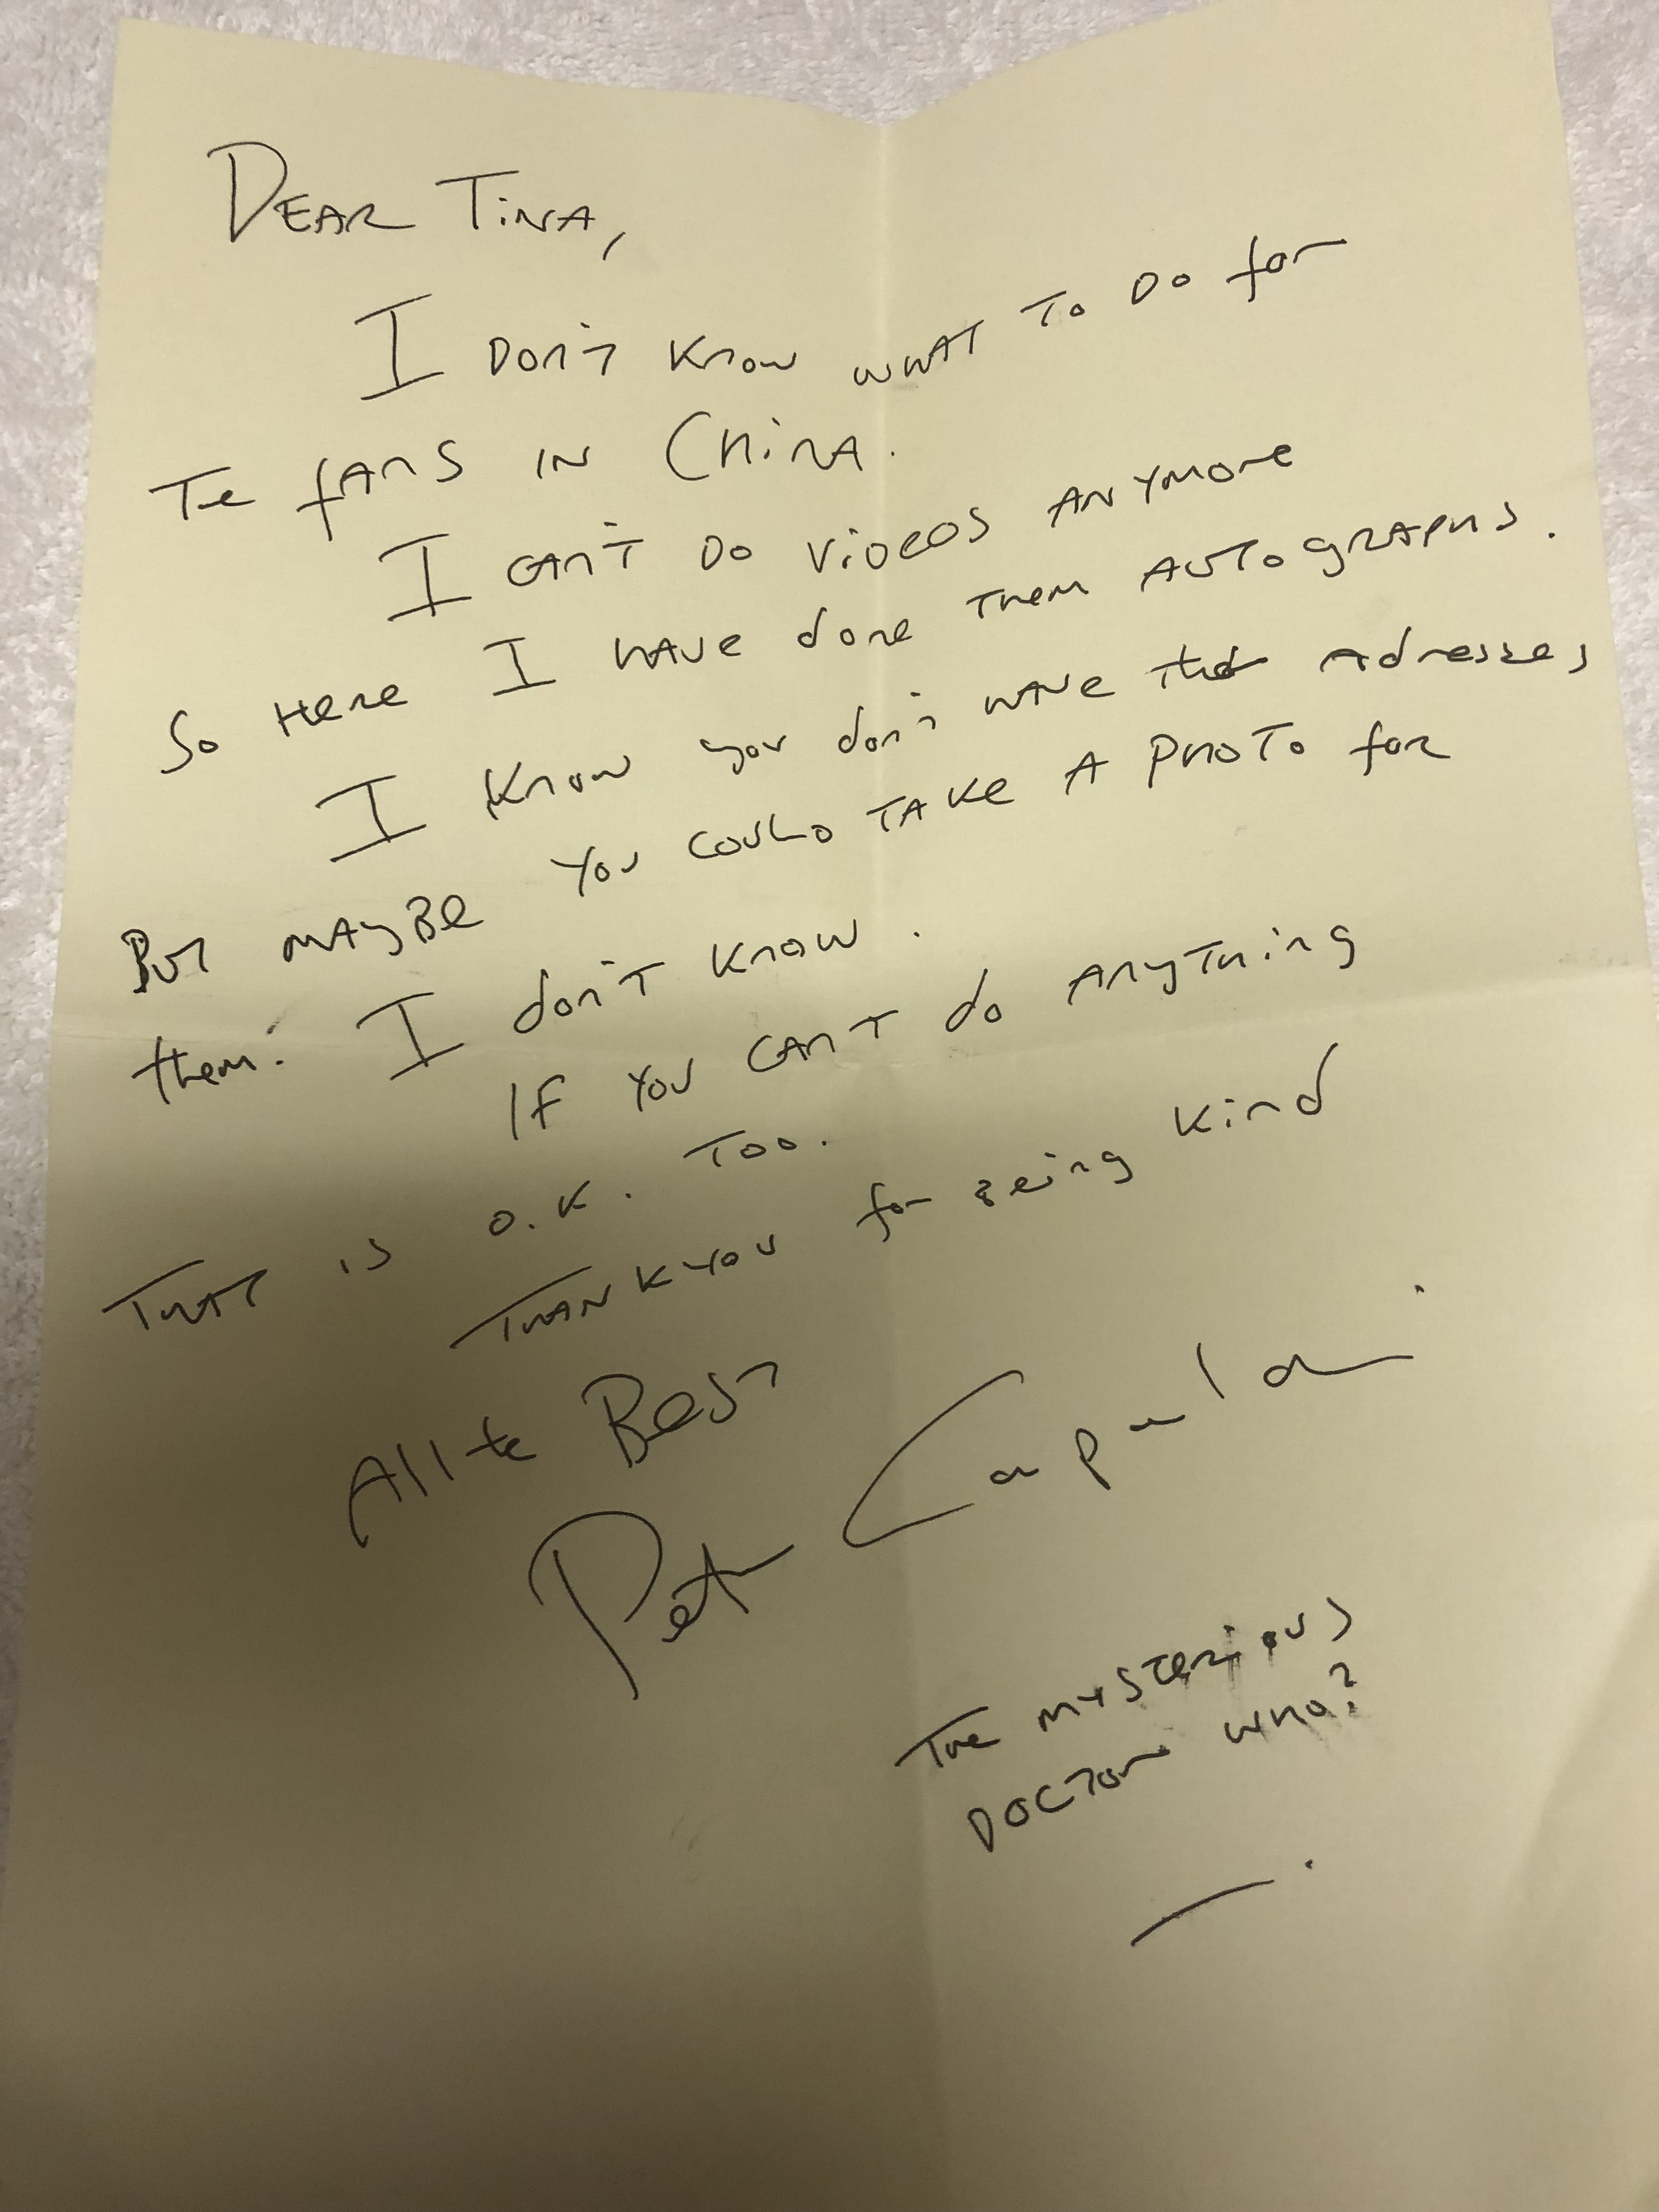 DEAR TINA,
I DON'T KNOW WHAT TO DO for
Te fANS IN CHINA.
I CAN'T DO VIDEOS ANYMORE
SO HERE I HAVE done THEM AUTOGRAPHS.
I KNOW you don't HAVE the Adresses
BUT MAYBE YOU COULD TAKE A PHOTO for
them. I don't KNOW.
IF YOU CAN'T do ANYTHING
THAT IS O.K. TOO.
THANKYOU for BEING KIND
All te BEST
Peter Capaldi
THE MYSTERIOUS
DOCTOR WHO?